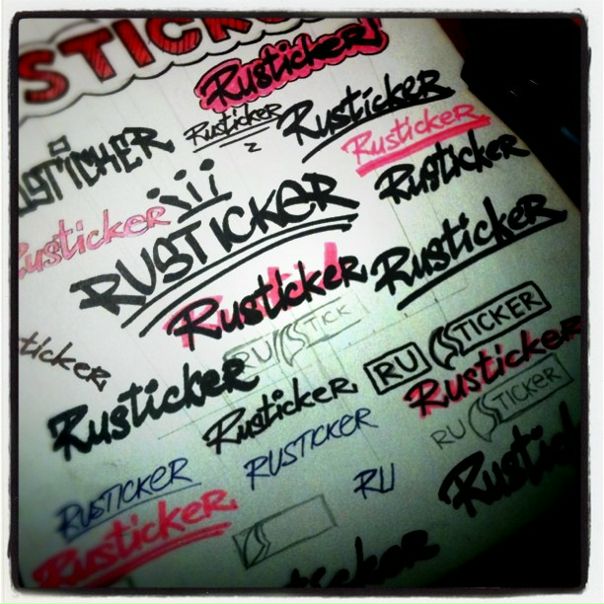 STICKER
Rusticker
Rusticker
Rusticker
Rusticker
STICKER
Rusticker
Rusticker
RUSTICKER
Rusticker
Rusticker
Rusticker
RU STICK
RU STICKER
ticker
Rusticker
Rusticker
Rusticker
RU STICKER
RUSTICKER
RUSTICKER
RU
Rustick
Rusticker
Rusticker